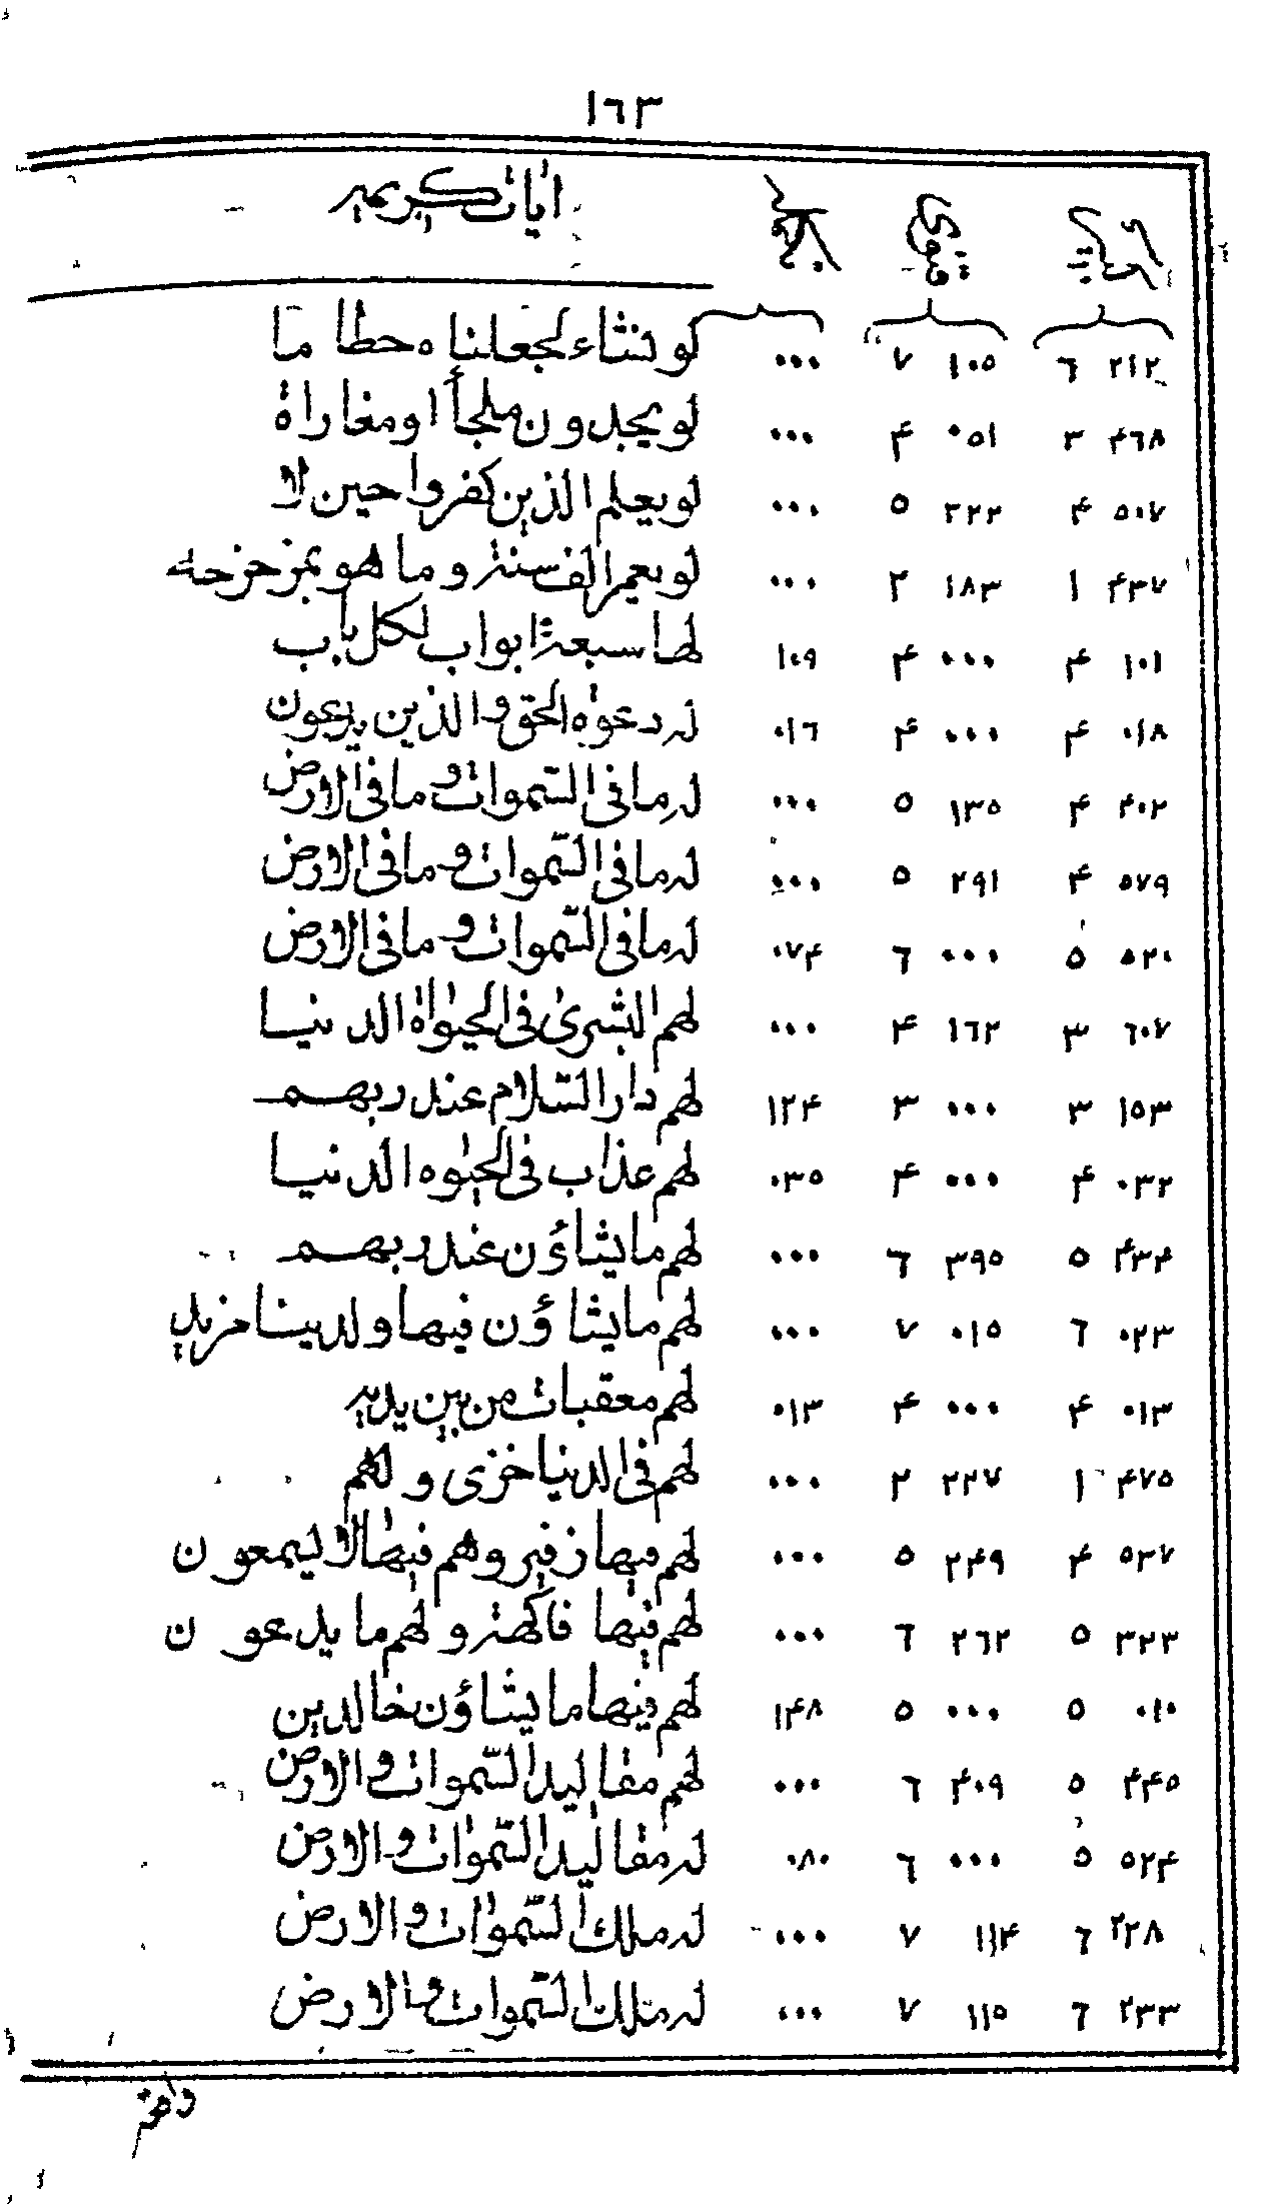 ١٦٣
ايات كريمه
٢١٢ ٦ ١٠٥ ٧ ٠٠٠ لو نشاء لجعلناه حطاما
۴٦٨ ٣ ٠٥١ ۴ ٠٠٠ لو يجدون ملجأ او مغاراة
٥٠٧ ۴ ٢٢٢ ٥ ٠٠٠ لو يعلم الذين كفروا حين لا
۴٣٧ ١ ١٨٣ ٢ ٠٠٠ لو يعمر الف سنة وما هو بمزحزحه
١٠١ ۴ ٠٠٠ ۴ ١٠٩ لها سبعة ابواب لكل باب
٠١٨ ۴ ٠٠٠ ۴ ٠١٦ له دعوة الحق والذين يدعون
۴٠٢ ۴ ١٣٥ ٥ ٠٠٠ له ما فى السموات وما فى الارض
٥٧٩ ۴ ٢٩١ ٥ ٠٠٠ له ما فى السموات وما فى الارض
٥٢٠ ٥ ٠٠٠ ٦ ٠٧۴ له ما فى السموات وما فى الارض
٦٠٧ ٣ ١٦٢ ۴ ٠٠٠ لهم البشرى فى الحيوة الدنيا
١٥٣ ٣ ٠٠٠ ٣ ١٢۴ لهم دار السلام عند ربهم
٠٣٢ ۴ ٠٠٠ ۴ ٠٣٥ لهم عذاب فى الحيوه الدنيا
۴٣۴ ٥ ٣٩٥ ٦ ٠٠٠ لهم ما يشاؤن عند ربهم
٠٢٣ ٦ ٠١٥ ٧ ٠٠٠ لهم ما يشاؤن فيها ولدينا مزيد
٠١٣ ۴ ٠٠٠ ۴ ٠١٣ لهم معقبات من بين يديه
۴٧٥ ١ ٢٢٧ ٢ ٠٠٠ لهم فى الدنيا خزى ولهم
٥٣٧ ۴ ٢۴٩ ٥ ٠٠٠ لهم فيها زفير وهم فيها لا يسمعون
٣٢٣ ٥ ٢٦٢ ٦ ٠٠٠ لهم فيها فاكهة ولهم ما يدعون
٠١٠ ٥ ٠٠٠ ٥ ١۴٨ لهم فيها ما يشاؤن خالدين
۴۴٥ ٥ ۴٠٩ ٦ ٠٠٠ لهم مقاليد السموات والارض
٥٢۴ ٥ ٠٠٠ ٦ ٠٨٠ له مقاليد السموات والارض
٢٢٨ ٦ ١١۴ ٧ ٠٠٠ له ملك السموات والارض
٢٣٣ ٦ ١١٥ ٧ ٠٠٠ له ملك السموات والارض